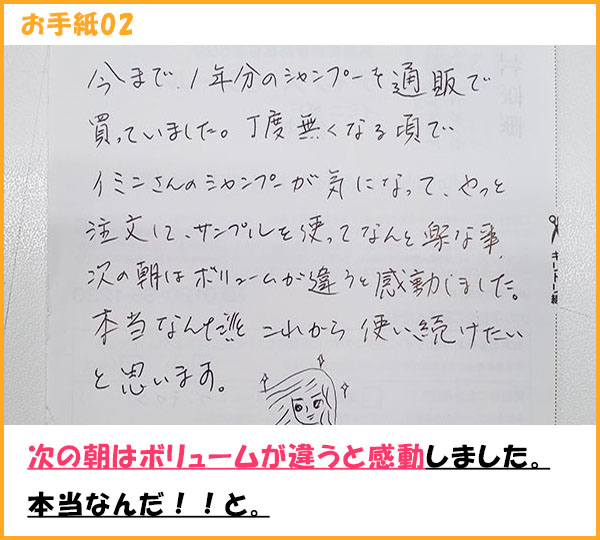 お手紙02
今まで、1年分のシャンプーを通販で
買っていました。丁度無くなる頃で
イミンさんのシャンプーが気になって、やっと
注文して、サンプルを使ってなんと楽な事、
次の朝はボリュームが違うと感動しました。
本当なんだ!!と これから 使い続けたい
と思います。
キリトリ線
次の朝はボリュームが違うと感動しました。
本当なんだ！！と。